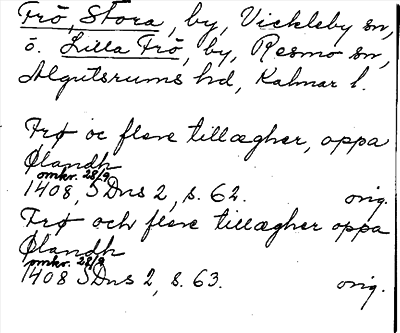 Frö, Stora, by, Vickleby sn,
o. Lilla Frö, by, Resmo sn,
Algutsrums hd, Kalmar l.
Frø oc flere tillægher, oppa
Ølandh
omkr. 28/9
1408, SDns 2, s. 62. orig.
Frø och flere tillægher oppa
Ølandh
omkr. 28/9
1408 SDns 2, s. 63. orig.